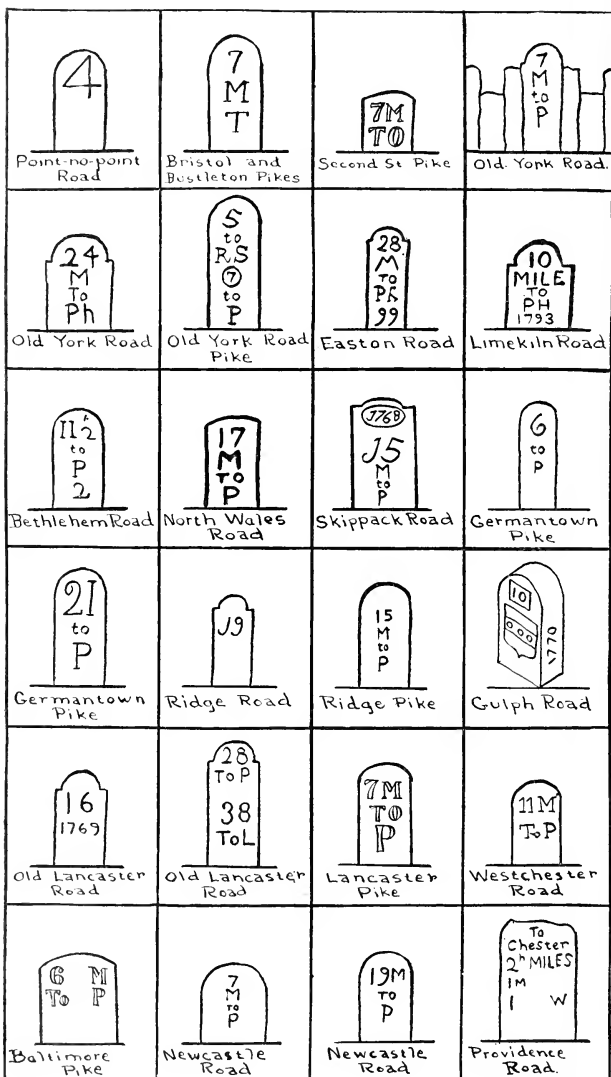 4
Point-no-point
Road
7
M
T
Bristol and
Bustleton Pikes
7M
TO
Second St Pike
7
M
to
P
Old York Road.
24
M
To
Ph
Old York Road
5
to
RS
7
to
P
Old York Road
Pike
28
M
TO
Ph
99
Easton Road
10
MILE
TO
PH
1793
Limekiln Road
to
P
2
Bethlehem Road
17
M
TO
P
North Wales
Road
J768
J5
M
to
P
Skippack Road
6
to
P
Germantown
Pike
2I
to
P
Germantown
Pike
J9
Ridge Road
15
M
to
P
Ridge Pike
10
1770
Gulph Road
16
1769
Old Lancaster
Road
28
To P
38
To L
Old Lancaster
Road
7M
TO
P
Lancaster
Pike
11 M
To P
Westchester
Road
6 M
To P
Baltimore
Pike
7
M
to
P
Newcastle
Road
19M
TO
P
Newcastle
Road
To
Chester
2h MILES
1M
1 W
Providence
Road.